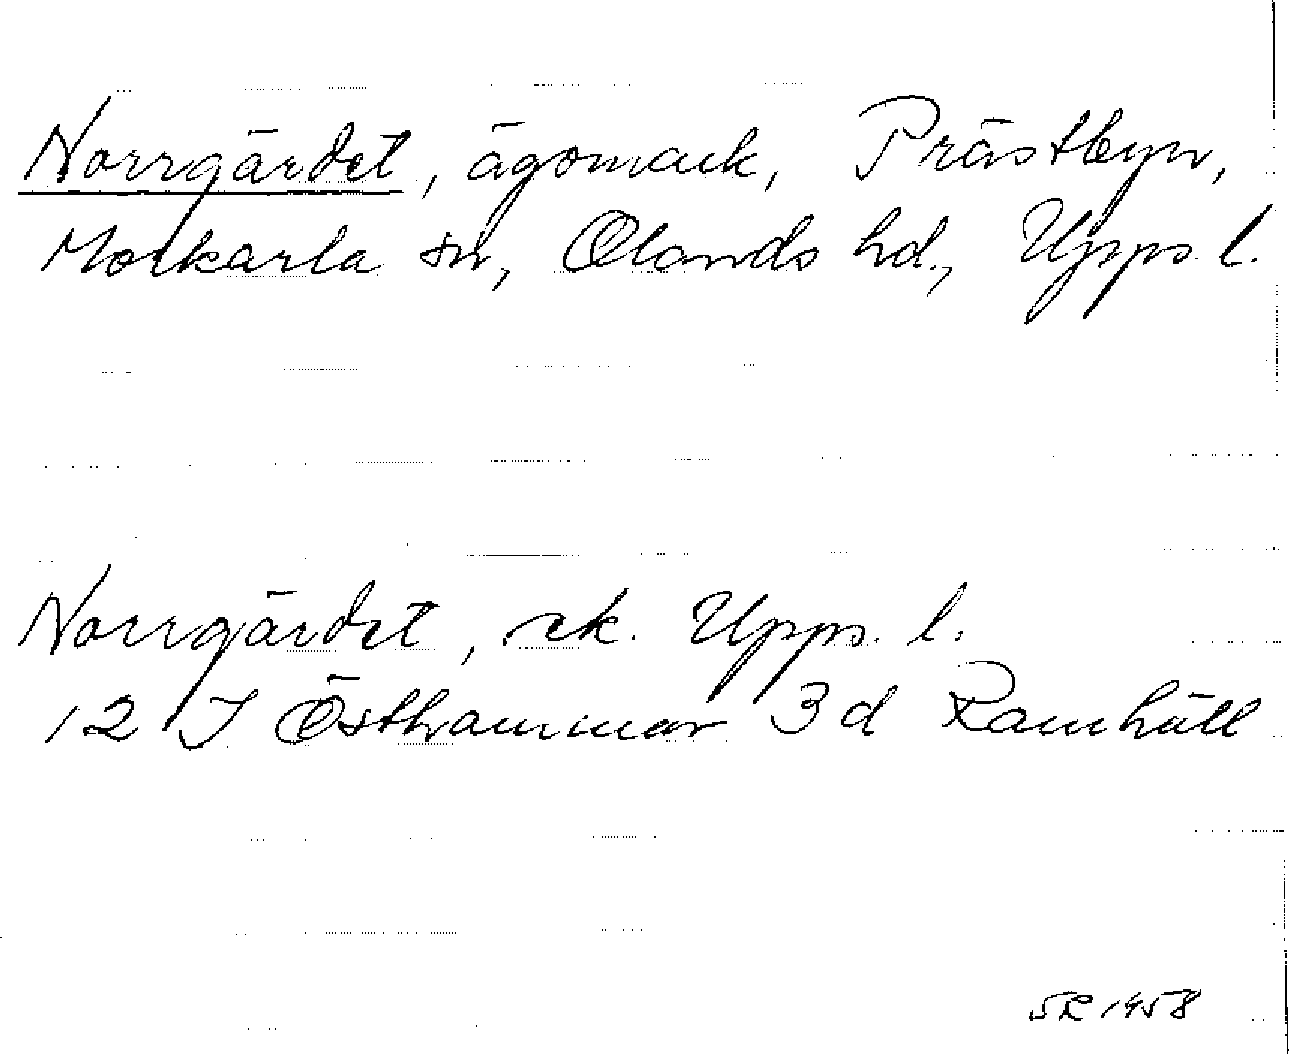 Norrgärdet, ägomark, Prästbyn,
Morkarla sn, Olands hd., Upps. l.
Norrgärdet, ek. Upps. l.
12 I Östhammar 3 d Ramhäll
SR 1958